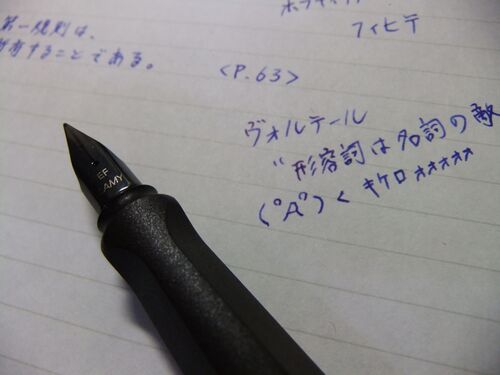 フィヒテ
第一規則は、
することである。
<P.63>
ヴォルテール
"形容詞は名詞の敵
(゚A゚)< キケロォォォォォ
EF
LAMY